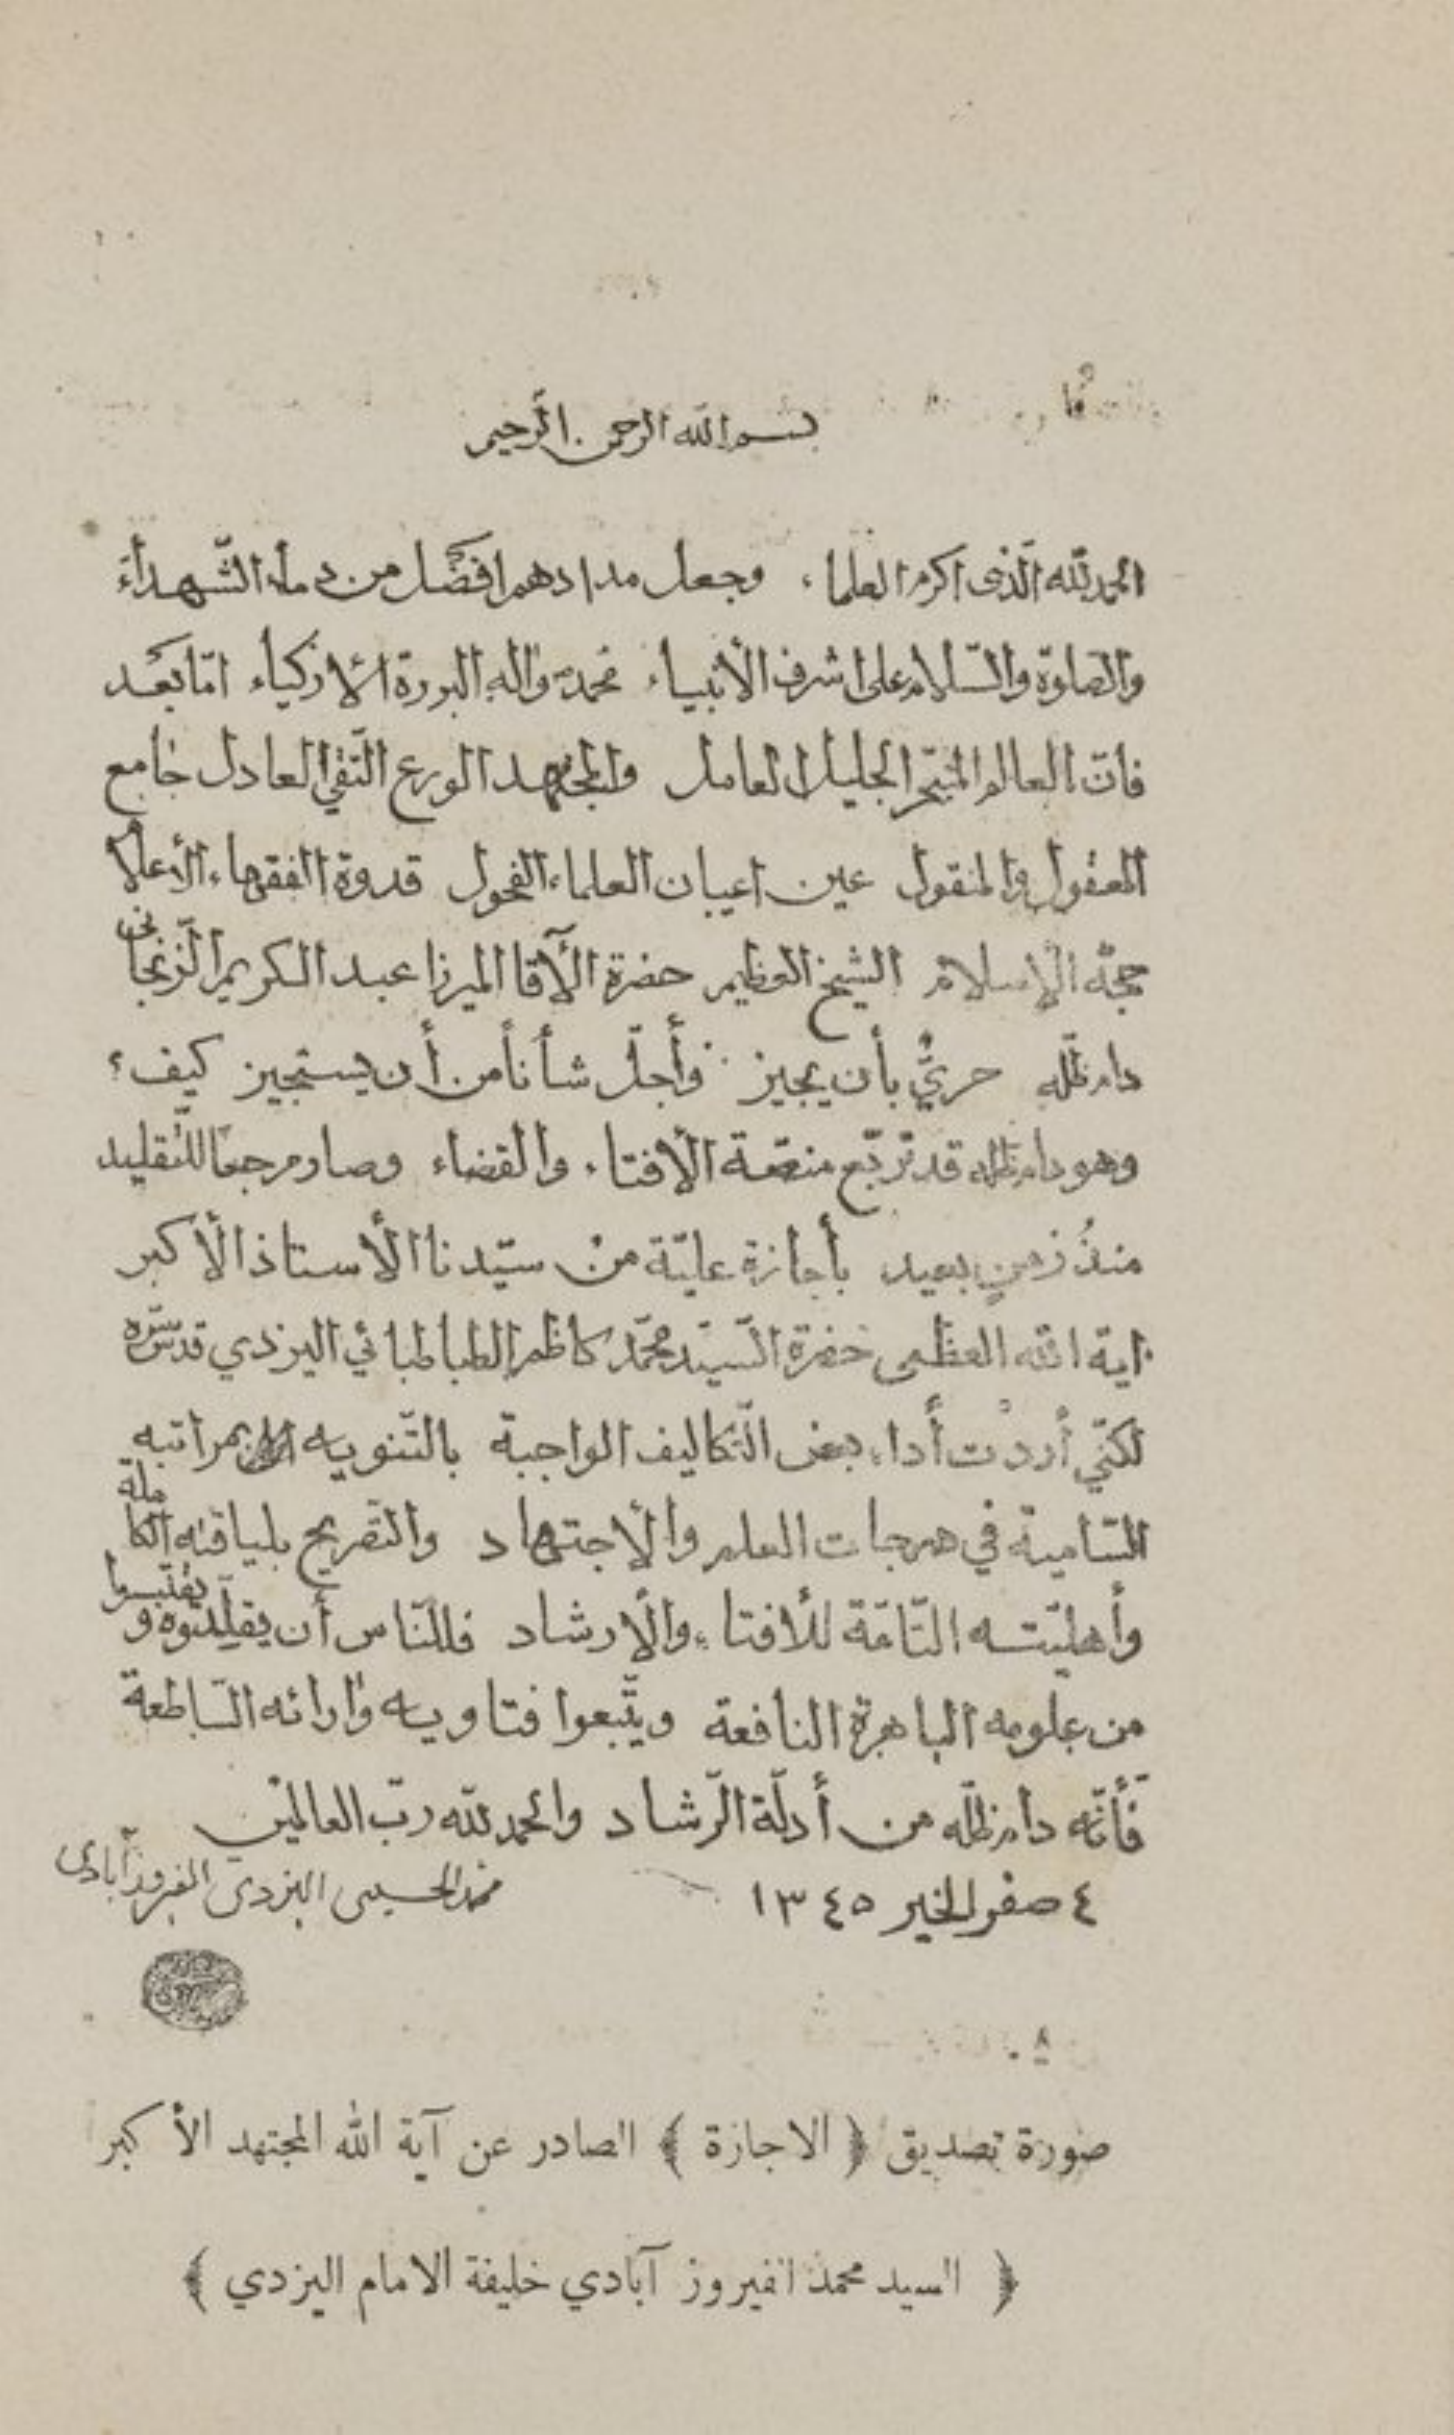 بسم الله الرحمن الرحيم
الحمد لله الّذى اكرم العلماء وجعل مدادهم افضل من دماء الشّهداء
والصلوة والسّلام على اشرف الأنبياء محمد واله البررة الازكياء امّا بعد
فانّ العالم المتبحّر الجليل العامل والمجتهد الورع التّقي العادل جامع
المعقول والمنقول عين اعيان العلماء الفحول قدوة الفقهاء الأعلام
حجّة الإسلام الشيخ العظيم حضرة الآقا الميرزا عبد الكريم الزّنجانى
دام ظلّه حريٌّ بأن يجيز وأجلّ شأناً من أن يستجيز كيف؟
وهو دام ظله قد تربّع منصّة الأفتاء والقضاء وصار مرجعاً للتّقليد
منذُ زمنٍ بعيد بأجازة عليّة من سيّدنا الأستاذ الأكبر
اية الله العظمى حضرة السّيّد محمّد كاظم الطباطبائي اليزدي قدّس سّره
لكنّي أردْت أداء بعض التّكاليف الواجبة بالتّنويه بمراتبه
السّامية في درجات العلم والأجتهاد والتّصريح بلياقته الكاملة
وأهليّته التّامّة للأفتاء والأرشاد فللنّاس أن يقلّدوه و يقتبسوا
من علومه الباهرة النافعة ويتّبعوا فتاويه وارائه السّاطعة
فأنّه دام ظلّه من أدلّة الرّشاد والحمد لله ربّ العالمين
٤ صفر الخير ١٣٤٥ محمد الحسينى اليزدى الفيروزآبادى
صورة تصديق ﴿ الاجازة ﴾ الصادر عن آية الله المجتهد الأكبر
﴿ السيد محمد الفيروز آبادي خليفة الامام اليزدي ﴾